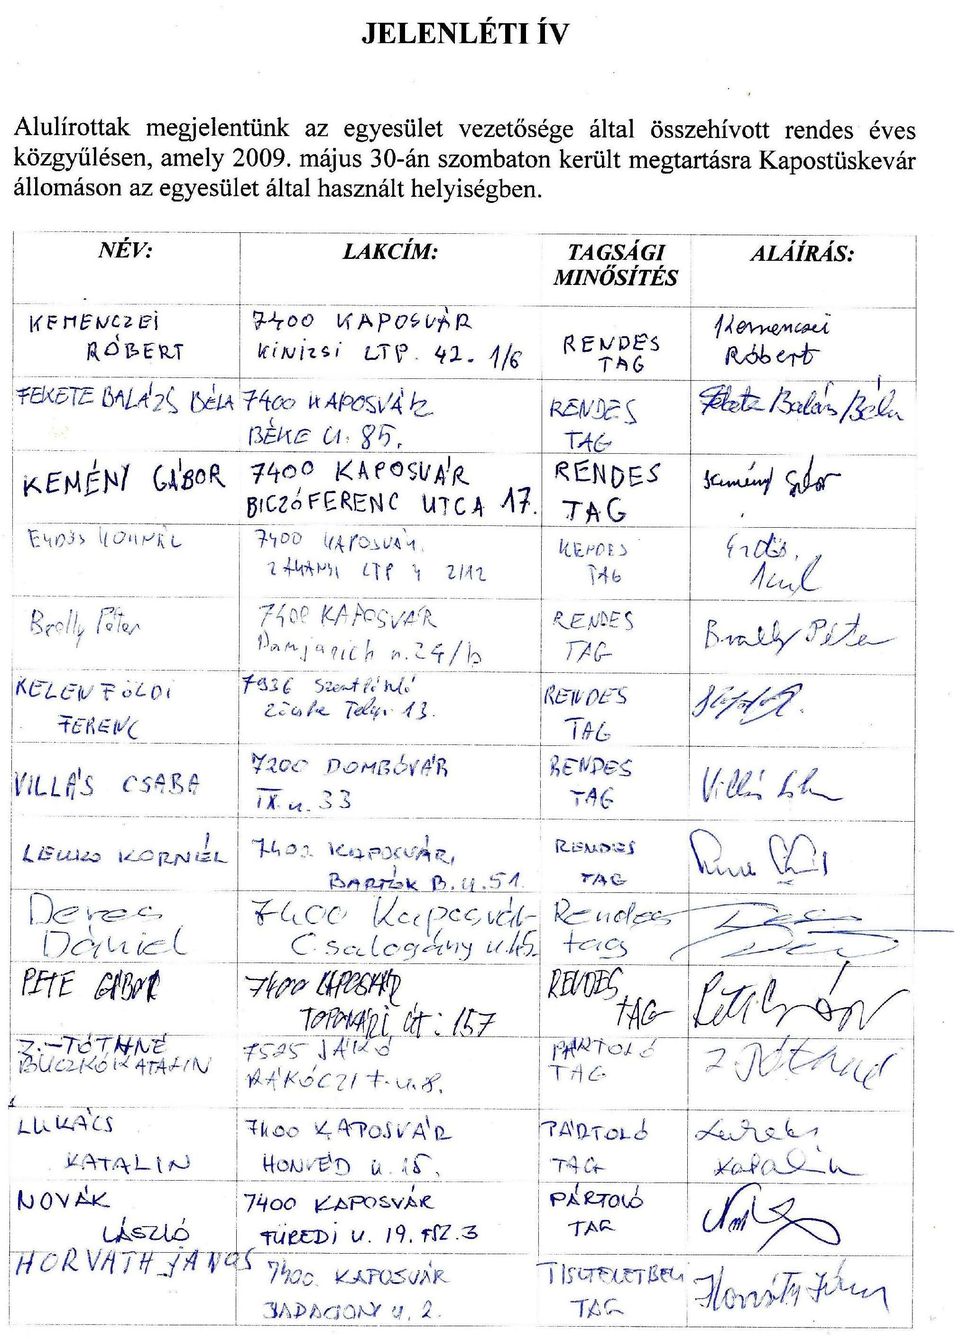 JELENLÉTI ÍV
Alulírottak megjelentünk az egyesület vezetősége által összehívott rendes éves
közgyűlésen, amely 2009. május 30-án szombaton került megtartásra Kapostüskevár
állomáson az egyesület által használt helyiségben.
NÉV: LAKCÍM: TAGSÁGI ALÁÍRÁS:
MINŐSÍTÉS
KEMENCZEI 7400 KAPOSVÁR RENDES Kemenczei
RÓBERT KINIZSI LTP. 42. 1/6 TAG Róbert
FEKETE BALÁZS BÉLA 7400 KAPOSVÁR RENDES Fekete Balázs Béla
BÉKE U. 85. TAG
KEMÉNY GÁBOR 7400 KAPOSVÁR RENDES Kemény Gábor
BICZÓ FERENC UTCA 17. TAG
7400 KAPOSVÁR RENDES Erdős
LTP 4 2/12 TAG
Brolly Péter 7400 KAPOSVÁR RENDES Brolly Péter
Damjanich u. 24/b TAG
KELENFÖLDI 7936 RENDES
FERENC TAG
VILLÁS CSABA 7200 DOMBÓVÁR RENDES Villás
IX. u. 33 TAG
KORNÉL 7400 KAPOSVÁR, RENDES
BARTÓK B. U. 51. TAG
Deres 7400 Kaposvár Rendes
Dániel Csalogány u. 45. tag
PETE GÁBOR 7400 KAPOSVÁR RENDES Pete Gábor
TOPONÁRI ÚT: 157 TAG
Z.-TÓTHNÉ 7525 JÁKÓ PÁRTOLÓ Z. Tóthné
BUCZKÓ KATALIN RÁKÓCZI F. u. 8. TAG
LUKÁCS 7400 KAPOSVÁR PÁRTOLÓ Lukács
KATALIN HONVÉD U. 15. TAG Katalin
NOVÁK 7400 KAPOSVÁR PÁRTOLÓ
LÁSZLÓ FÜREDI U. 19. FSZ. 3 TAG
HORVÁTH JÁNOS 7400 KAPOSVÁR TISZTELETBELI Horváth János
BADACSONY U. 2. TAG